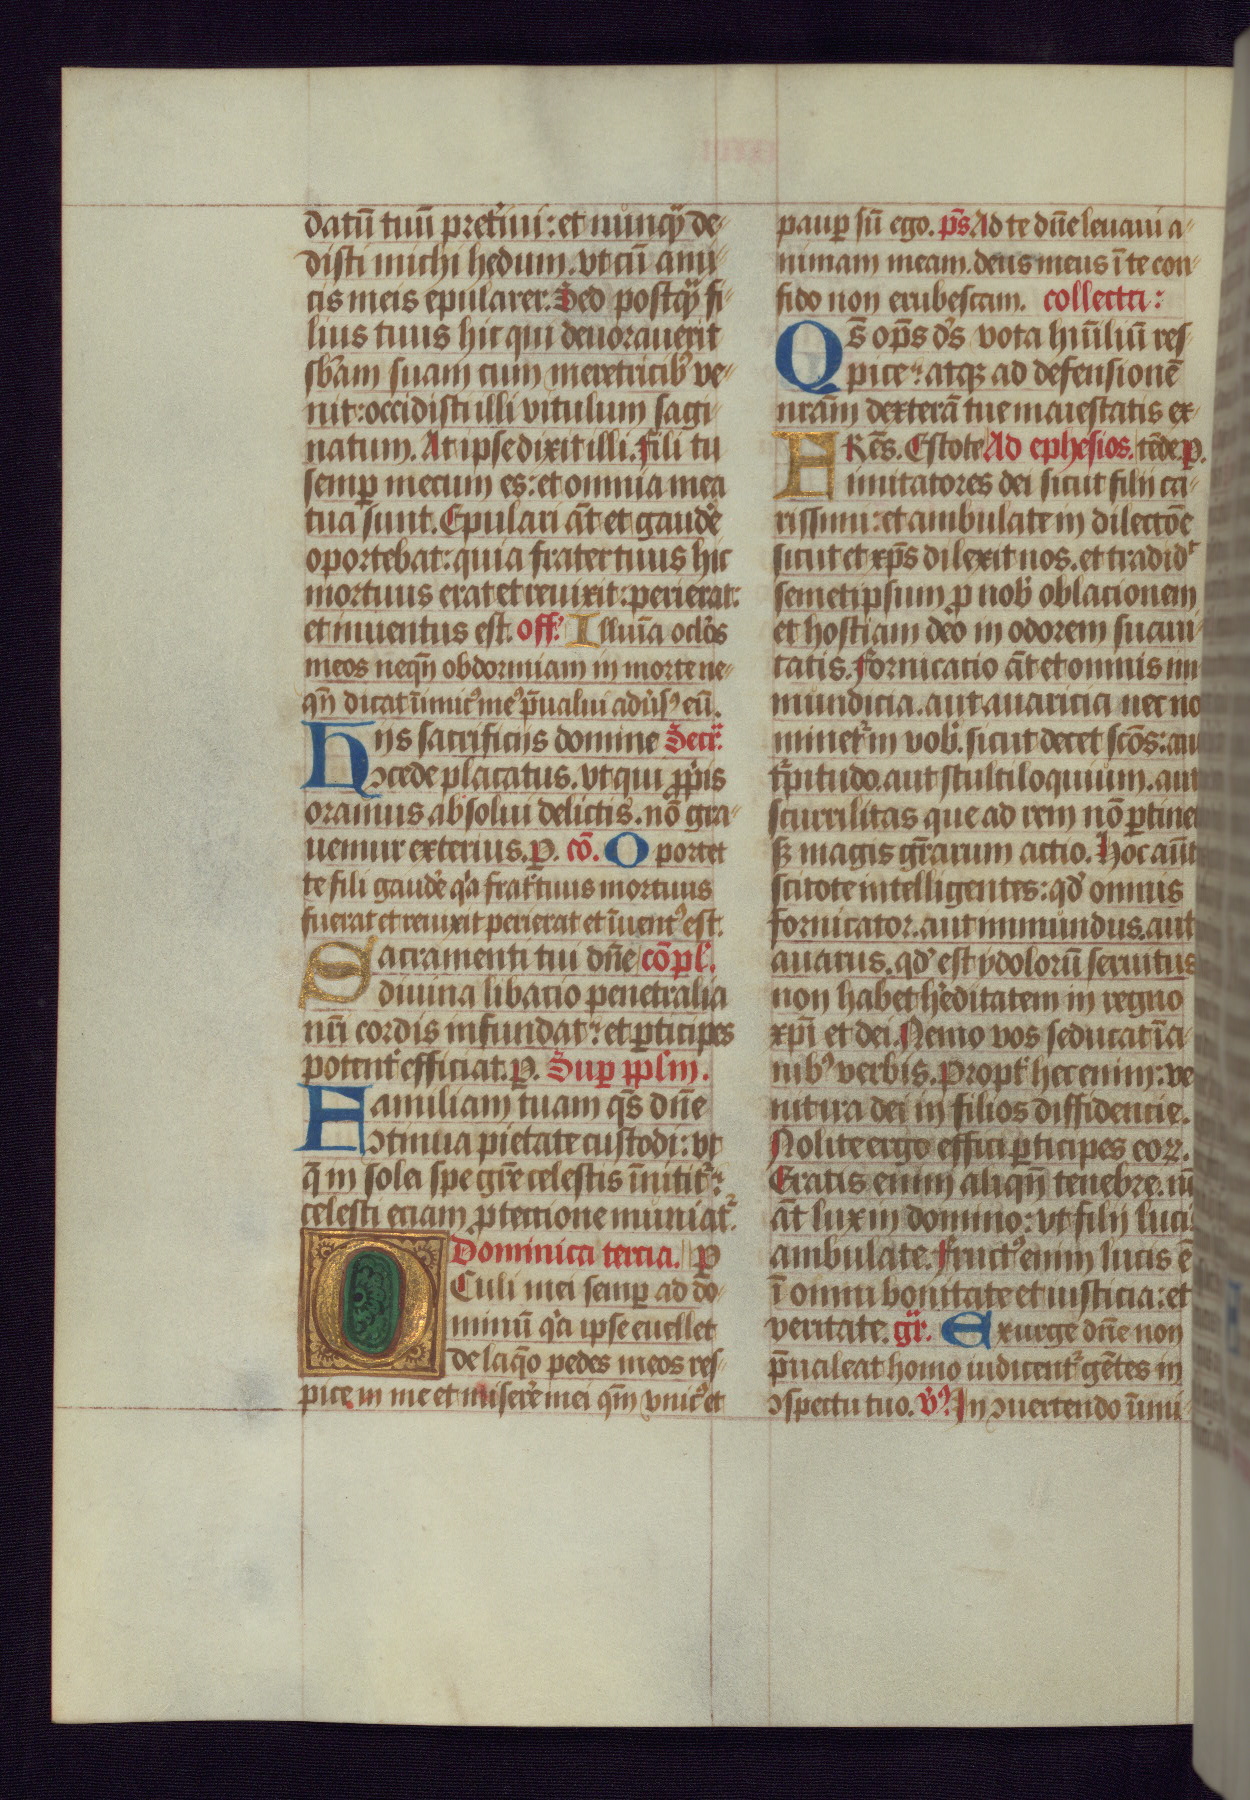 datū tuū pret'iui: et nunq̄ de-
disti michi hedum. vt cū ami-
cis meis epularer. Sed postq̄ fi-
lius tuus hic qui deuorauerit
sb'am suam cum meretricib' ve-
nit: occidisti illi vitulum sagi-
natum. At ipse dixit illi. Fili tu
semp mecum es: et omnia mea
tua sunt. Epulari āt et gaude
oportebat: quia frater tuus hic
mortuus erat et reuixit: perierat:
et inuentus est. off. Illuīa oclōs
meos neqn̄ obdormiam in morte ne-
qn̄ dicat īnimic' me' p̄ualui aduʼs' eū.
Hiis sacrificiis domine Secr̄.
ɔcede placatus. vt qui pp̄is
oramus absolui delictis. nō gra-
uemur exterius. p. cō. Oportet
te fili gaude q'a frat' tuus mortuus
fuerat et reuixit perierat et īuent' est.
Sacramenti tui dn̄e cōpl'.
diuina libacio penetralia
nr̄i cordis infundat: et pticipes
potent' efficiat. p. Sup pplm.
Familiam tuam qs̄ dn̄e
ɔtinua pietate custodi: vt
q̄ in sola spe gr̄e celestis īnitit':
celesti eciam ptectione muniat'.
Dominica tercia. p
Oculi mei semp ad do-
minū q'a ipse euellet
de laq̄o pedes meos res-
pice in me et misere mei qm̄ vnic' et
paup sū ego. ps̄. Ad te dn̄e leuaui a-
nimam meam. deus meus ī te con-
fido non erubescam. collecta:
Qs̄ op̄s d's vota hūiliū res-
pice: atq; ad defensionē
nr̄am dexterā tue maiestatis ex-
FRēs. Estote Ad ephesios. tēde. p.
imitatores dei sicut filii ca-
rissimi: et ambulate in dilectōe
sicut et xp̄s dilexit uos. et tradid'
semetipsum p nob' oblacionem
et hostiam deo in odorem suaui-
tatis. Fornicatio āt et omnis im
mundicia. aut auaricia nec no
minet' in vob'. sicut decet scōs: au
t'pitudo. aut stultiloquium. aut
scurrilitas que ad rem nō ptinet
s; magis gr̄arum actio. Hoc aūt
scitote intelligentes: qd' omnis
fornicator. aut inmundus. aut
auarus. qd' est ydolorū seruitus
non habet h'editatem in regno
xp̄i et dei. Nemo vos seducat īa-
nib' verbis. Propt' hec enim: ve
nit ira dei in filios diffidencie.
Nolite ergo effici pticipes eoꝝ.
Eratis enim aliqn̄ tenebre. nū
āt lux in domino: vt filii luci
ambulate. Fruct' enim lucis ē
ī omni bonitate et iusticia: et
veritate. gr̄. Exurge dn̄e non
p̄ualeat homo iudicent' gētes in
ɔspectu tuo. V̄. In ɔuertendo īnimi